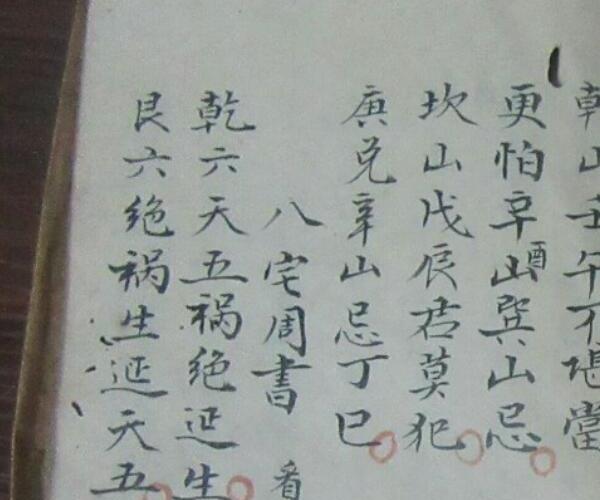 乾山壬午不堪當
更怕辛酉山巽山忌
坎山戊辰君莫犯
庚兑辛山忌丁巳
八宅周書 看
乾六天五祸绝延生
艮六绝祸生延天五